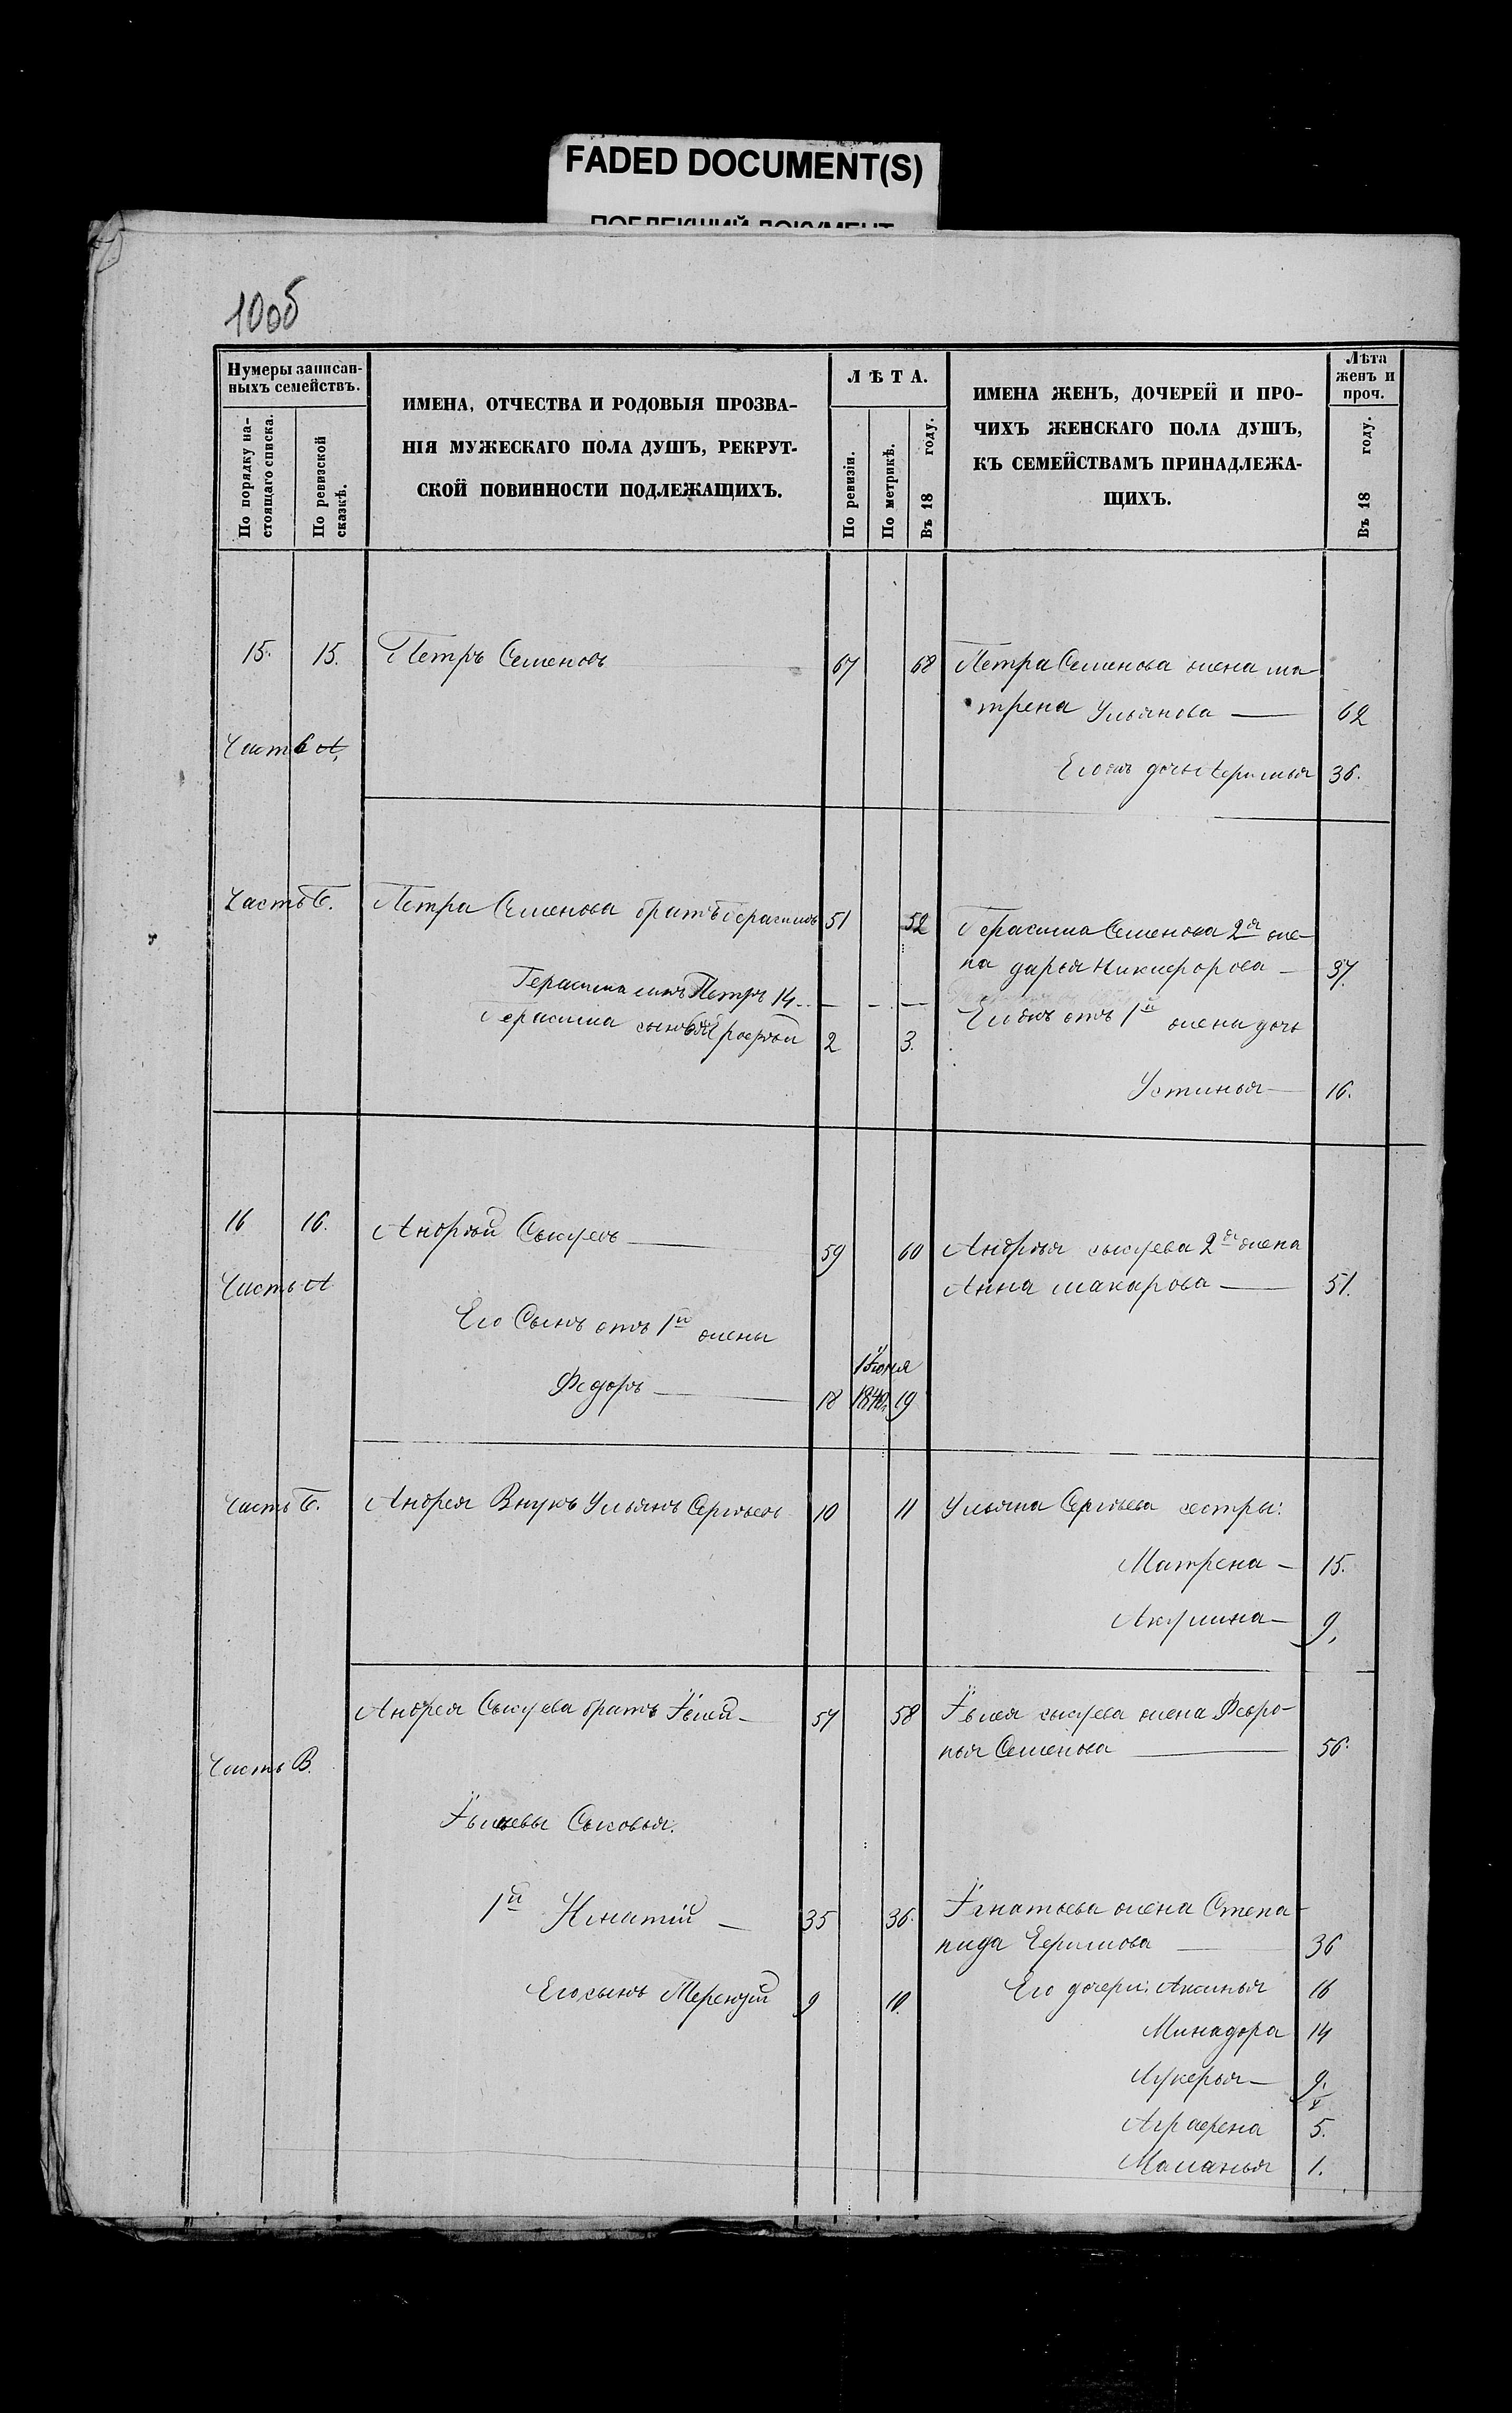 FADED DOCUMENT(S)
ПОБЛЕКШИЙ ДОКУМЕНТ
10об
Нумеры записан-
ныхъ семействъ.
По порядку на-
стоящаго списка.
По ревизской
сказкѣ.
ИМЕНА, ОТЧЕСТВА И РОДОВЫЯ ПРОЗВА-
НІЯ МУЖЕСКАГО ПОЛА ДУШЪ, РЕКРУТ-
СКОЙ ПОВИННОСТИ ПОДЛЕЖАЩИХЪ.
ЛѢТА.
По ревизіи.
По метрикѣ.
Въ 18 году.
ИМЕНА ЖЕНЪ, ДОЧЕРЕЙ И ПРО-
ЧИХЪ ЖЕНСКАГО ПОЛА ДУШЪ,
КЪ СЕМЕЙСТВАМЪ ПРИНАДЛЕЖА-
ЩИХЪ.
Лѣта
женъ и
проч.
Въ 18 году.
15. 15. Петръ Семеновъ 67 68 Петра Семенова жена ма-
трена Ульянова 62
Часть А,
дочь 36.
Часть Б. Петра Семенова братъ Герасимъ 51 52 Герасима Семенова 2я же-
на дарья Никифорова 37.
Герасима сынъ Петръ 14 — - —
Герасима 2 3. отъ 1й жены дочь
Устинья 16.
16 16. Андрѣй 59 60 Андрѣя 2я жена
Анна макарова 51.
Часть А
Его Сынъ отъ 1й жены
Федоръ 18 1840. 19
Часть Б. Андрея Внукъ Ульянъ Сергѣевъ 10 11 Ульяна Сергѣева сестры:
Матрена 15.
Акулина 9.
Андрея братъ 57 58 жена Февро-
нья Семенова 56.
Часть В.
Сыновья.
1й Игнатій 35 36. Игнатьева жена Степа-
нида 36
Его сынъ Терентій 9 10. Его дочери: Аксинья 16
Минадора 14
Лукерья 9.
Аграфена 5.
Маланья 1.